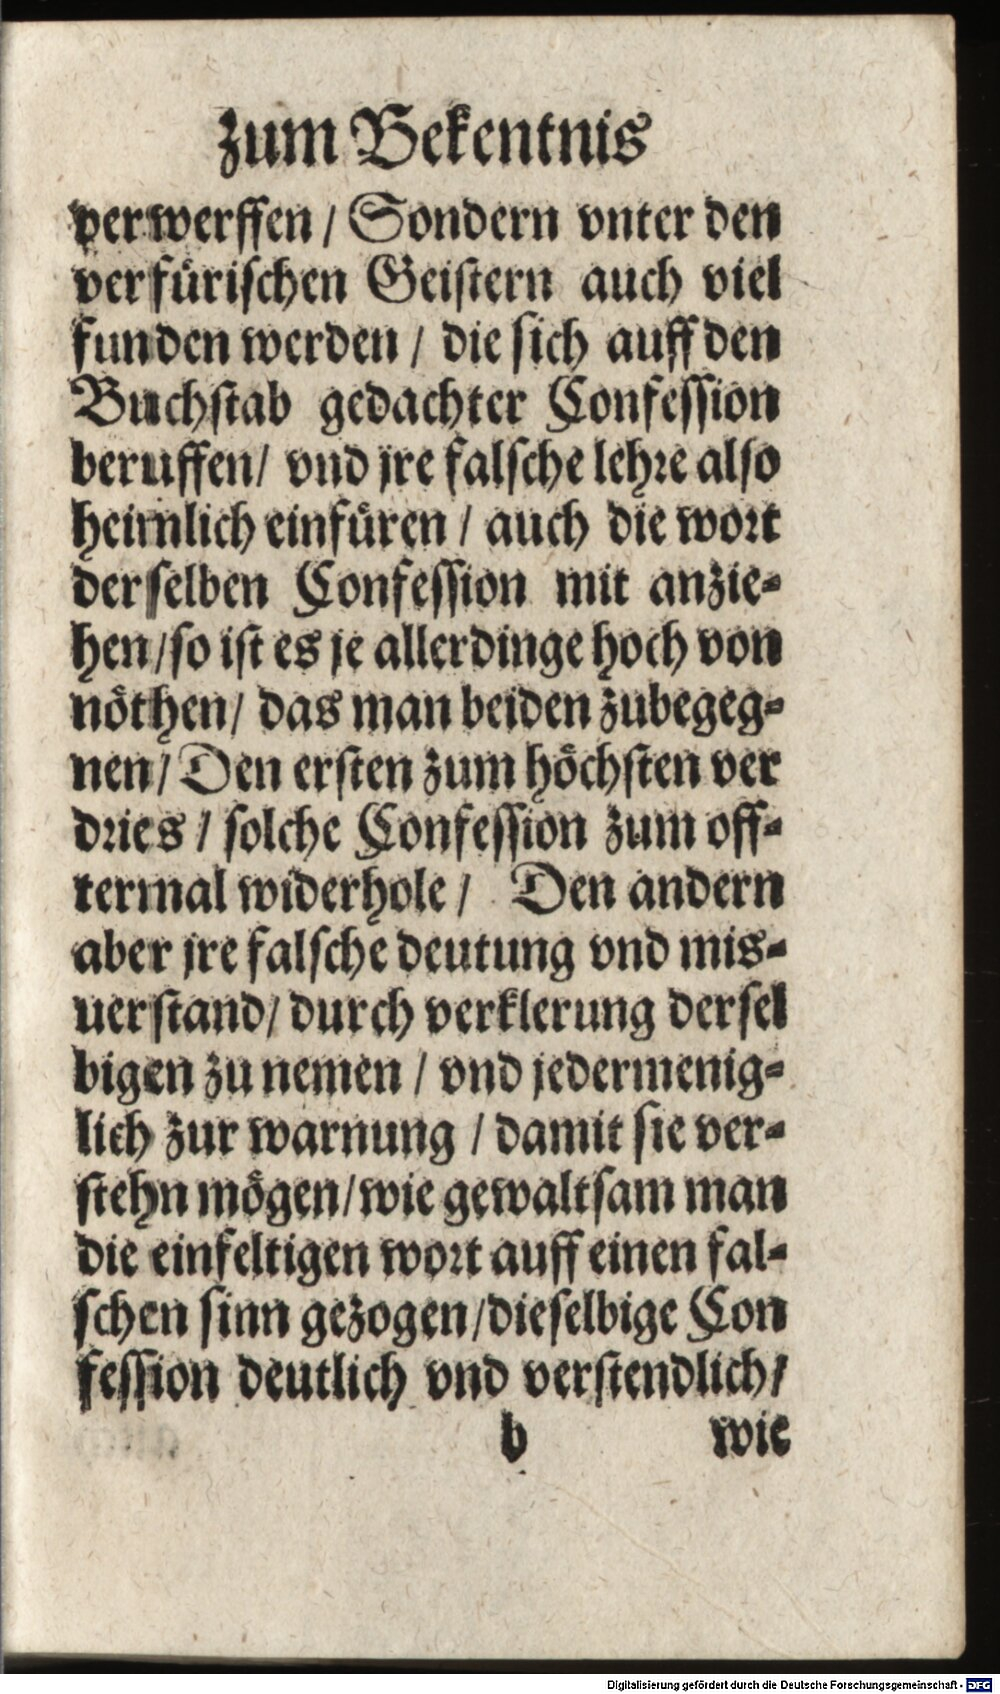 zum Bekentnis
verwerffen / Sondern vnter den
verfürischen Geistern auch viel
funden werden / die sich auff den
Buchstab gedachter Confession
beruffen / vnd jre falsche lehre also
heimlich einfüren / auch die wort
derselben Confession mit anzie-
hen / so ist es je allerdinge hoch von
nöthen / das man beiden zubegeg-
nen / Den ersten zum höchsten ver
dries / solche Confession zum off-
termal widerhole / Den andern
aber jre falsche deutung vnd mis-
uerstand / durch verklerung dersel
bigen zu nemen / vnd jedermenig-
lich zur warnung / damit sie ver-
stehn mögen / wie gewaltsam man
die einfeltigen wort auff einen fal-
schen sinn gezogen / dieselbige Con
fession deutlich vnd verstendlich /
b wie
Digitalisierung gefördert durch die Deutsche Forschungsgemeinschaft - DFG